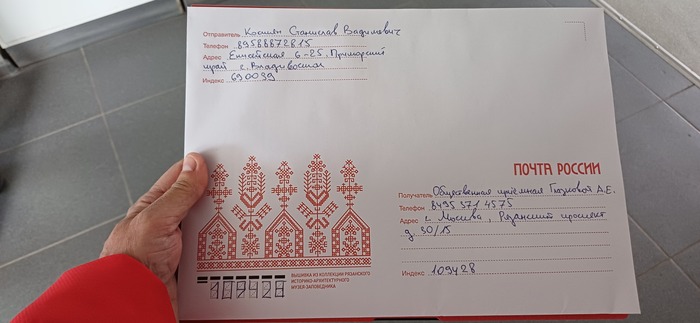 Отправитель Кошин Станислав Вадимович
Телефон 89588872815
Адрес Енисейская 6-25, Приморский
край г. Владивосток
Индекс 690039
ПОЧТА РОССИИ
Получатель Общественная приёмная А.Е.
Телефон 8495 371 4575
Адрес г. Москва, Рязанский проспект
д 30/15
Индекс 109428
ВЫШИВКА ИЗ КОЛЛЕКЦИИ РЯЗАНСКОГО
ИСТОРИКО-АРХИТЕКТУРНОГО
МУЗЕЯ-ЗАПОВЕДНИКА
109428